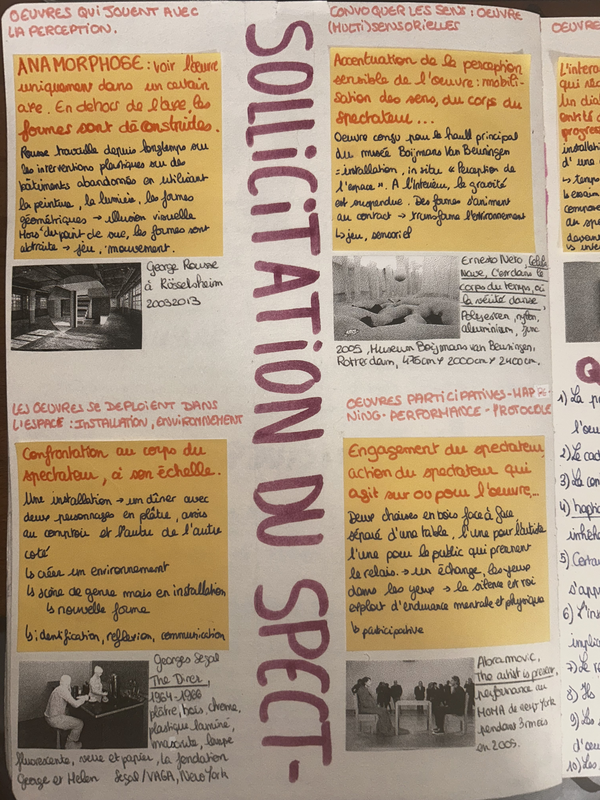 OEUVRES QUI JOUENT AVEC
LA PERCEPTION.
ANAMORPHOSE : voir l'œuvre
uniquement dans un certain
axe. En dehors de l'axe, les
formes sont déconstruides.
Rousse travaille depuis longtemps sur
les interventions plastiques sur des
bâtiments abandonnés en utilisant
la peinture, la lumière, les formes
géométriques → illusion visuelle
Hors du point de vue, les formes sont
abstraite → jeu, mouvement.
George Rousse
à Rüsselsheim
20032013
LES OEUVRES SE DEPLOIENT DANS
L'ESPACE : INSTALLATION, ENVIRONNEMENT
Confrontation au corps du
spectateur, à son échelle.
Une installation → un dîner avec
deux personnages en plâtre, assis
au comptoir et l'autre de l'autre
coté
↳ créer un environnement
↳ scène de genre mais en installation
↳ nouvelle forme
↳ identification, reflexion, communication
Georges Segal
The Diner,
1964-1966
plâtre, bois, chrome,
plastique laminé,
masonite, lampe
fluorescente, verre et papier, la fondation
George et Helen Segal/VAGA, New York
SOLLiCiTATiON DU SPECT-
CONVOQUER LES SENS : OEUVRE
(MULTI)SENSORIELLES
Accentuation de la perception
sensible de l'oeuvre : mobili-
sation des sens, du corps du
spectateur...
Oeuvre conçu pour le hall principal
du musée Boijmans Van Beuningen
: installation, in situ « Perception de
l'espace ». A l'intérieur, la gravité
est suspendue. Des formes s'animent
au contact → transforme l'environnement
↳ jeu, sensoriel
Ernesto Neto, Célula
Nave, C'est dans le
corps du temps, où
la vérité danse
Polyesteren, nylon,
aluminium, zinc
2005, Museum Boijmans van Beuningen,
Rotterdam, 475cm x 2000cm x 2400cm.
OEUVRES PARTICIPATIVES-HAPPE-
NING-PERFORMANCE-PROTOCOLE
Engagement du spectateur,
action du spectateur qui
agit sur ou pour l'oeuvre...
Deux chaises en bois face à face
séparé d'une table, l'une pour l'artiste
l'une pour le public qui prennent
le relais. → un échange, les yeux
dans les yeux → le silence est roi
exploit d'endurance mentale et physique
↳ participative
Abramovic,
The artist is present,
performance au
MoMA de New York
pendant 3 mois
en 2005.
OEUVRE
L'intera
qui réa
un dia
entité c
progres
installati
d'une
↳ temp
compose
au sp
devan
↳ inte
1) La p
l'oeu
2) Le cad
3) La con
4) haptic
inhé
5) Certai
s'app
6) L'ins
implic
7) Le r
8) Ils
9) Les
d'oeu
10) Les